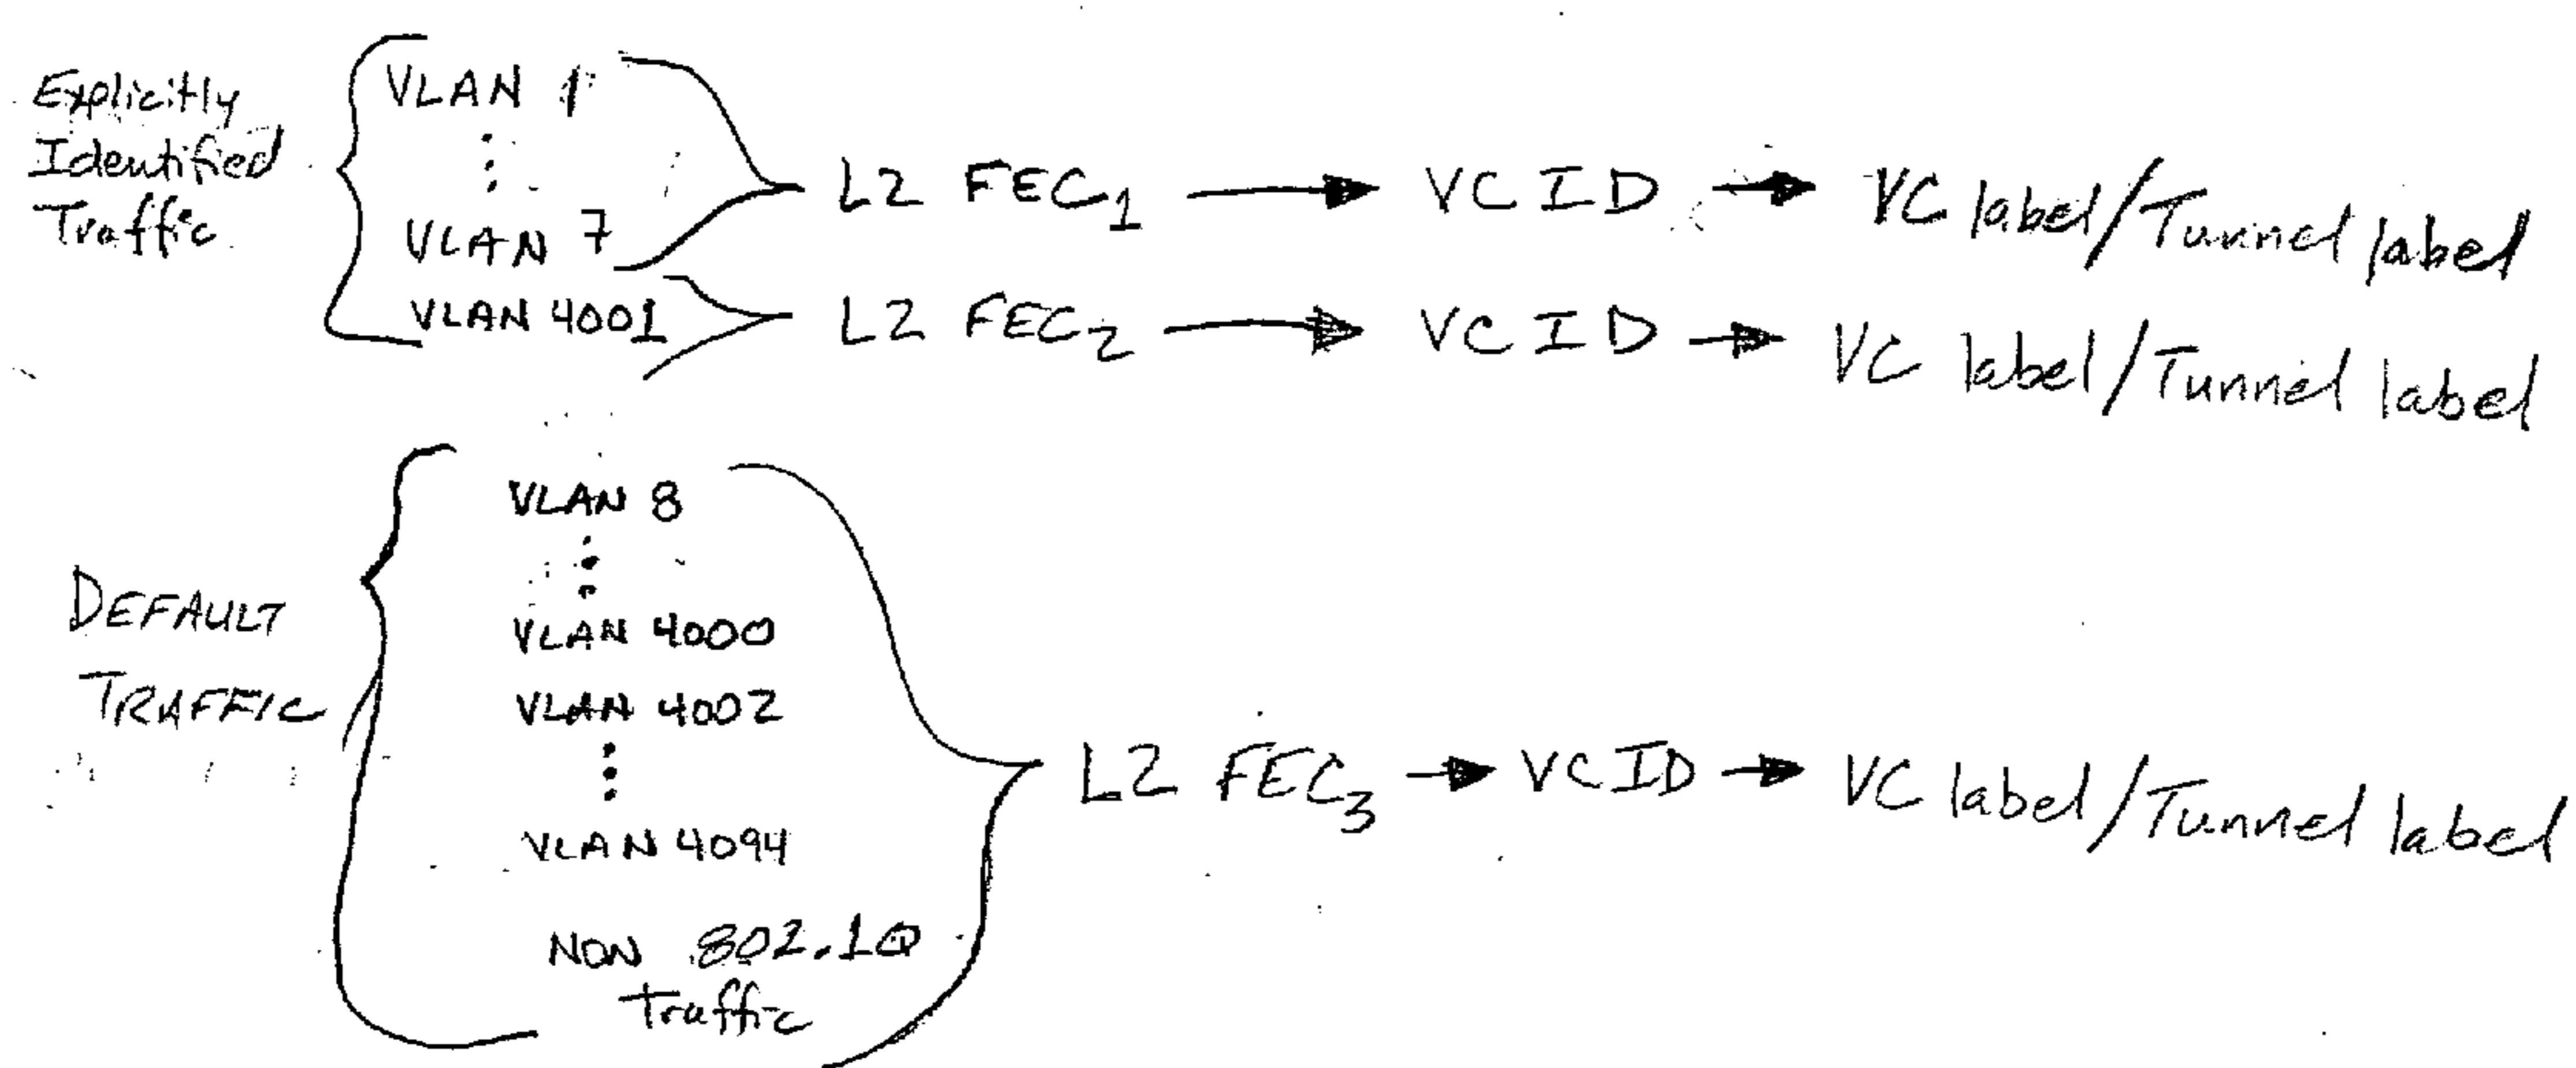 Explicitly
Identified
Traffic
VLAN 1
VLAN 7
VLAN 4001
L2 FEC1 VC ID VC label/Tunnel label
L2 FEC2 VC ID VC label/Tunnel label
DEFAULT
TRAFFIC
VLAN 8
VLAN 4000
VLAN 4002
VLAN 4094
NON 802.1Q
Traffic
L2 FEC3 VC ID VC label/Tunnel label